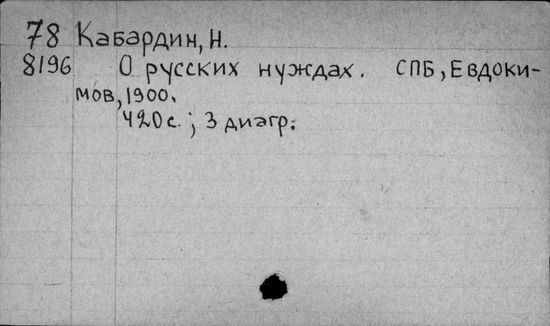 78 Кабардин, Н.
8196 О русских нуждах. СПБ, Евдоки-
мов, 1900.
420с.; 3 диагр.